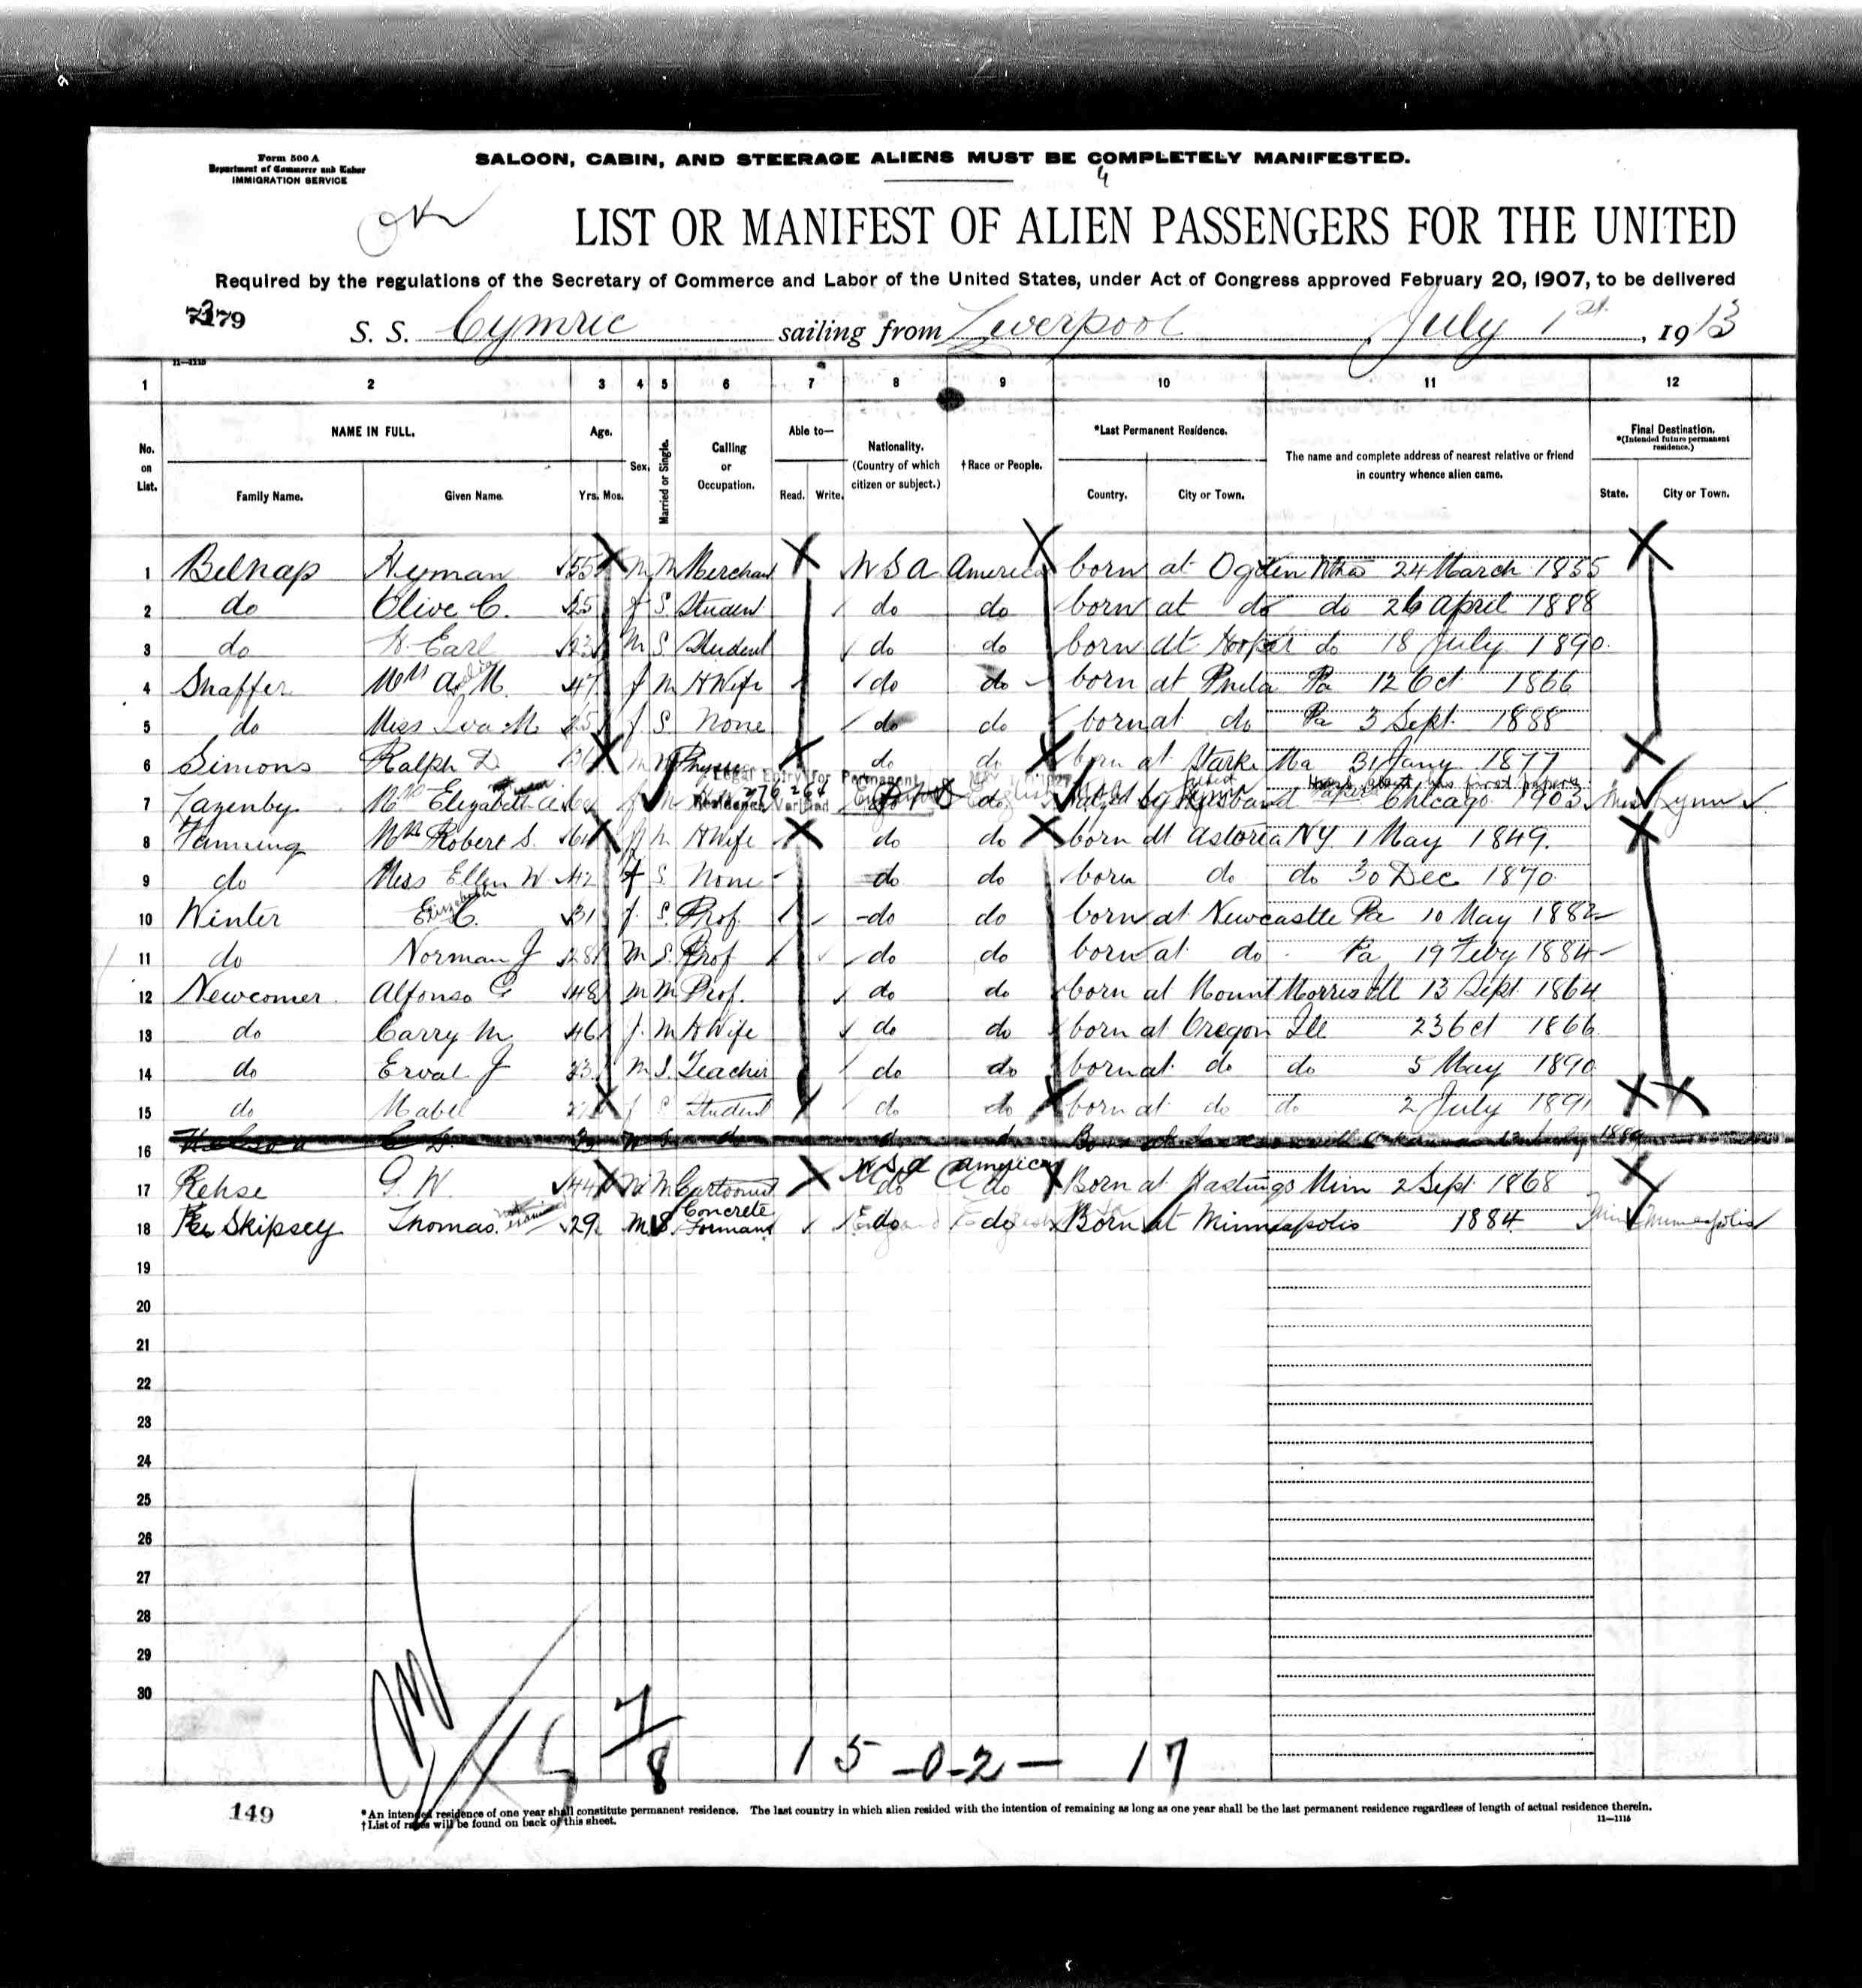 Form 500 A
Department of Commerce and Labor
IMMIGRATION SERVICE
SALOON, CABIN, AND STEERAGE ALIENS MUST BE COMPLETELY MANIFESTED.
4
OK
LIST OR MANIFEST OF ALIEN PASSENGERS FOR THE UNITED
Required by the regulations of the Secretary of Commerce and Labor of the United States, under Act of Congress approved February 20, 1907, to be delivered
179
S. S. Cymric sailing from Liverpool July 1st, 1913
11—1115
1 2 3 4 5 6 7 8 9 10 11 12
No. on List.
NAME IN FULL.
Family Name. Given Name.
Age.
Yrs. Mos.
Sex.
Married or Single.
Calling or Occupation.
Able to—
Read. Write.
Nationality. (Country of which citizen or subject.)
†Race or People.
*Last Permanent Residence.
Country. City or Town.
The name and complete address of nearest relative or friend in country whence alien came.
Final Destination. *(Intended future permanent residence.)
State. City or Town.
1 Belnap Hyman 55 M M Merchant U S A America born at Ogden Utha 24 March 1855
2 do Olive C. 25 f S Student do do born at do do 26 April 1888
3 do H. Earl 23 M S Student do do born at Hooper do 18 July 1890
4 Shaffer Mrs A. M. 47 f M H Wife do do born at Phila Pa 12 Oct 1866
5 do Miss Iva M 25 f S None do do born at do Pa 3 Sept 1888
6 Simons Ralph D 36 M do do born at Starke 31 Jany 1877
7 Lazenby Mrs Elizabeth A. f M Legal Entry for Permanent Residence 276264 by Husband Chicago 1903 Lynn
8 Fanning Mrs Robert S. 64 f M H Wife do do born at Astoria NY 1 May 1849.
9 do Miss Ellen W 42 f S None do do born do do 30 Dec 1870
10 Winter E. C. Elizabeth 31 f. S. Prof do do born at Newcastle Pa 10 May 1882
11 do Norman J 28 M S Prof do do born at do Pa 19 Feby 1884
12 Newcomer Alfonso G 48 M M Prof. do do born at Mount Morris Ill 13 Sept 1864
13 do Carry M 46 f. M H Wife do do born at Oregon Ill 23 Oct 1866
14 do Erval J 23 M S. Teacher do do born at do do 5 May 1890
15 do Mabel f S Student do do born at do do 2 July 1891
16 C. D. 23 M S do do do Born at
17 Rehse G. W. 44 M M Cartoonist U S A do America do Born at Hastings Minn 2 Sept 1868
18 Skipsey Thomas. 29 M S Concrete Formans do do Born at Minneapolis 1884 Minn Minneapolis
19
20
21
22
23
24
25
26
27
28
29
30
7/8 15-0-2- 17
149
*An intended residence of one year shall constitute permanent residence. The last country in which alien resided with the intention of remaining as long as one year shall be the last permanent residence regardless of length of actual residence therein.
†List of races will be found on back of this sheet.
11—1115